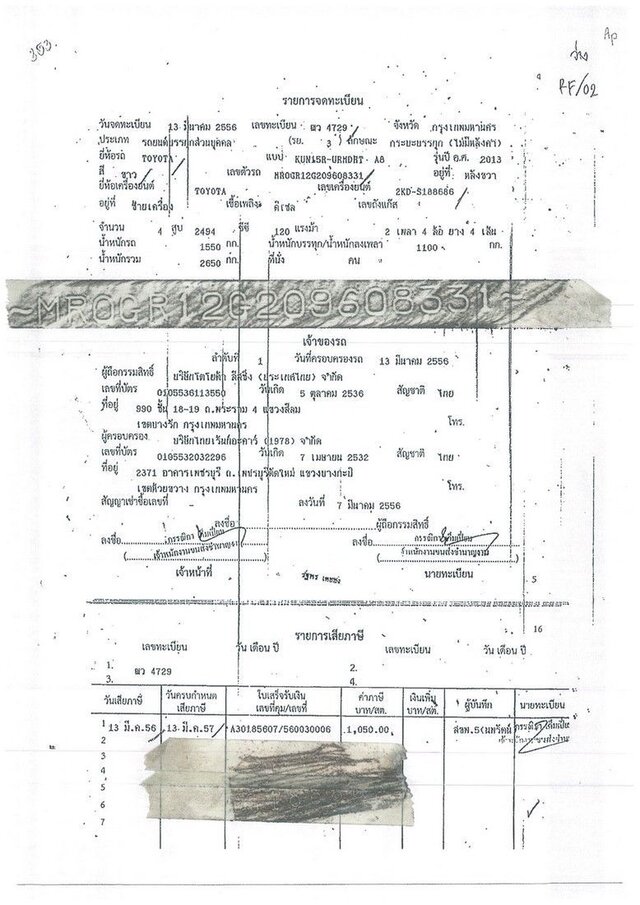 353.
Ap
ว่าง
RF/02
รายการจดทะเบียน
วันจดทะเบียน 13 มีนาคม 2556 เลขทะเบียน ผว 4729 จังหวัด กรุงเทพมหานคร
ประเภท รถยนต์บรรทุกส่วนบุคคล (รย. 3 ) ลักษณะ กระบะบรรทุก (ไม่มีหลังคา)
ยี่ห้อรถ TOYOTA แบบ KUN15R-URMDHT A8 รุ่นปี ค.ศ. 2013
สี ขาว เลขตัวรถ MR0GR12G209608331 อยู่ที่ หลังขวา
ยี่ห้อเครื่องยนต์ TOYOTA เลขเครื่องยนต์ 2KD-S188686
อยู่ที่ ซ้ายเครื่อง เชื้อเพลิง ดีเซล เลขถังแก๊ส
จำนวน 4 สูบ 2494 ซีซี 120 แรงม้า 2 เพลา 4 ล้อ ยาง 4 เส้น
น้ำหนักรถ 1550 กก. น้ำหนักบรรทุก/น้ำหนักลงเพลา 1100 กก.
น้ำหนักรวม 2650 กก. ที่นั่ง คน
~MR0GR12G209608331~
เจ้าของรถ
ลำดับที่ 1 วันที่ครอบครองรถ 13 มีนาคม 2556
ผู้ถือกรรมสิทธิ์ บริษัทโตโยต้า ลีสซิ่ง (ประเทศไทย) จำกัด
เลขที่บัตร 0105536113550 วันเกิด 5 ตุลาคม 2536 สัญชาติ ไทย
ที่อยู่ 990 ชั้น 18-19 ถ.พระราม 4 แขวงสีลม
เขตบางรัก กรุงเทพมหานคร โทร.
ผู้ครอบครอง บริษัทไทยเร้นท์อะคาร์ (1978) จำกัด
เลขที่บัตร 0105532032296 วันเกิด 7 เมษายน 2532 สัญชาติ ไทย
ที่อยู่ 2371 อาคารเพชรบุรี ถ.เพชรบุรีตัดใหม่ แขวงบางกะปิ
เขตห้วยขวาง กรุงเทพมหานคร โทร.
สัญญาเช่าซื้อเลขที่ ลงวันที่ 7 มีนาคม 2556
ลงชื่อ ผู้ถือกรรมสิทธิ์
ลงชื่อ ลงชื่อ
เจ้าพนักงานขนส่งชำนาญงาน เจ้าพนักงานขนส่งชำนาญงาน
เจ้าหน้าที่ นายทะเบียน
5
16
รายการเสียภาษี
เลขทะเบียน วัน เดือน ปี เลขทะเบียน วัน เดือน ปี
1. ผว 4729 2.
3. 4.
วันเสียภาษี วันครบกำหนดเสียภาษี ใบเสร็จรับเงิน เลขที่คุม/เลขที่ ค่าภาษี บาท/สต. เงินเพิ่ม บาท/สต. ผู้บันทึก นายทะเบียน
1 13 มี.ค.56 13 มี.ค.57 A30185607/560030006 1,050.00
2
3
4
5
6
7